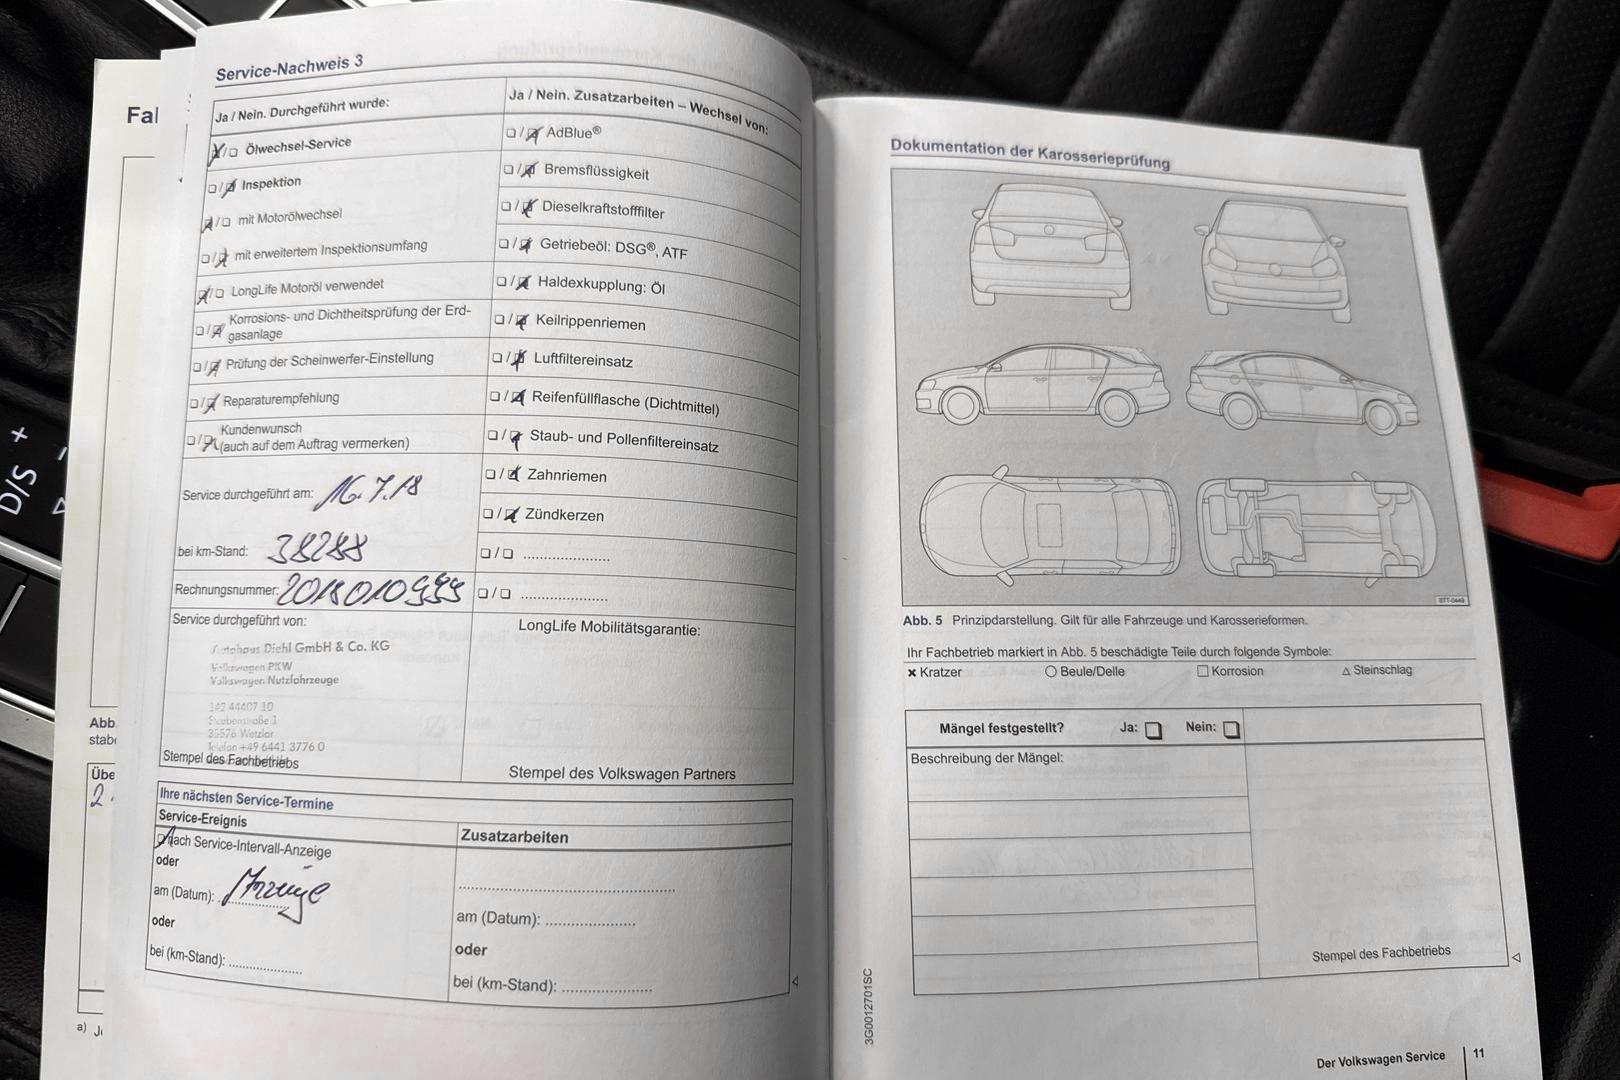 Fal
Service-Nachweis 3
Ja / Nein. Durchgeführt wurde:
Ölwechsel-Service
Inspektion
mit Motorölwechsel
mit erweitertem Inspektionsumfang
LongLife Motoröl verwendet
Korrosions- und Dichtheitsprüfung der Erd-
gasanlage
Prüfung der Scheinwerfer-Einstellung
Reparaturempfehlung
Kundenwunsch
(auch auf dem Auftrag vermerken)
Service durchgeführt am: 16.7.18
bei km-Stand: 38288
Rechnungsnummer:
Service durchgeführt von:
Autohaus Diehl GmbH & Co. KG
Volkswagen PKW
Volkswagen Nutzfahrzeuge
142 44407 10
Steubenstraße 1
35576 Wetzlar
Telefon +49 6441 3776 0
Stempel des Fachbetriebs
Ja / Nein. Zusatzarbeiten – Wechsel von:
AdBlue®
Bremsflüssigkeit
Dieselkraftstofffilter
Getriebeöl: DSG®, ATF
Haldexkupplung: Öl
Keilrippenriemen
Luftfiltereinsatz
Reifenfüllflasche (Dichtmittel)
Staub- und Pollenfiltereinsatz
Zahnriemen
Zündkerzen
LongLife Mobilitätsgarantie:
Stempel des Volkswagen Partners
Ihre nächsten Service-Termine
Service-Ereignis
nach Service-Intervall-Anzeige
oder
am (Datum): Anzeige
oder
bei (km-Stand):
Zusatzarbeiten
am (Datum):
oder
bei (km-Stand):
Abb.
stabe
Übe
2.
a)
D/S
+
Dokumentation der Karosserieprüfung
STT-0449
Abb. 5 Prinzipdarstellung. Gilt für alle Fahrzeuge und Karosserieformen.
Ihr Fachbetrieb markiert in Abb. 5 beschädigte Teile durch folgende Symbole:
× Kratzer ○ Beule/Delle □ Korrosion △ Steinschlag
Mängel festgestellt? Ja: □ Nein: □
Beschreibung der Mängel:
Stempel des Fachbetriebs
3G0012701SC
Der Volkswagen Service 11